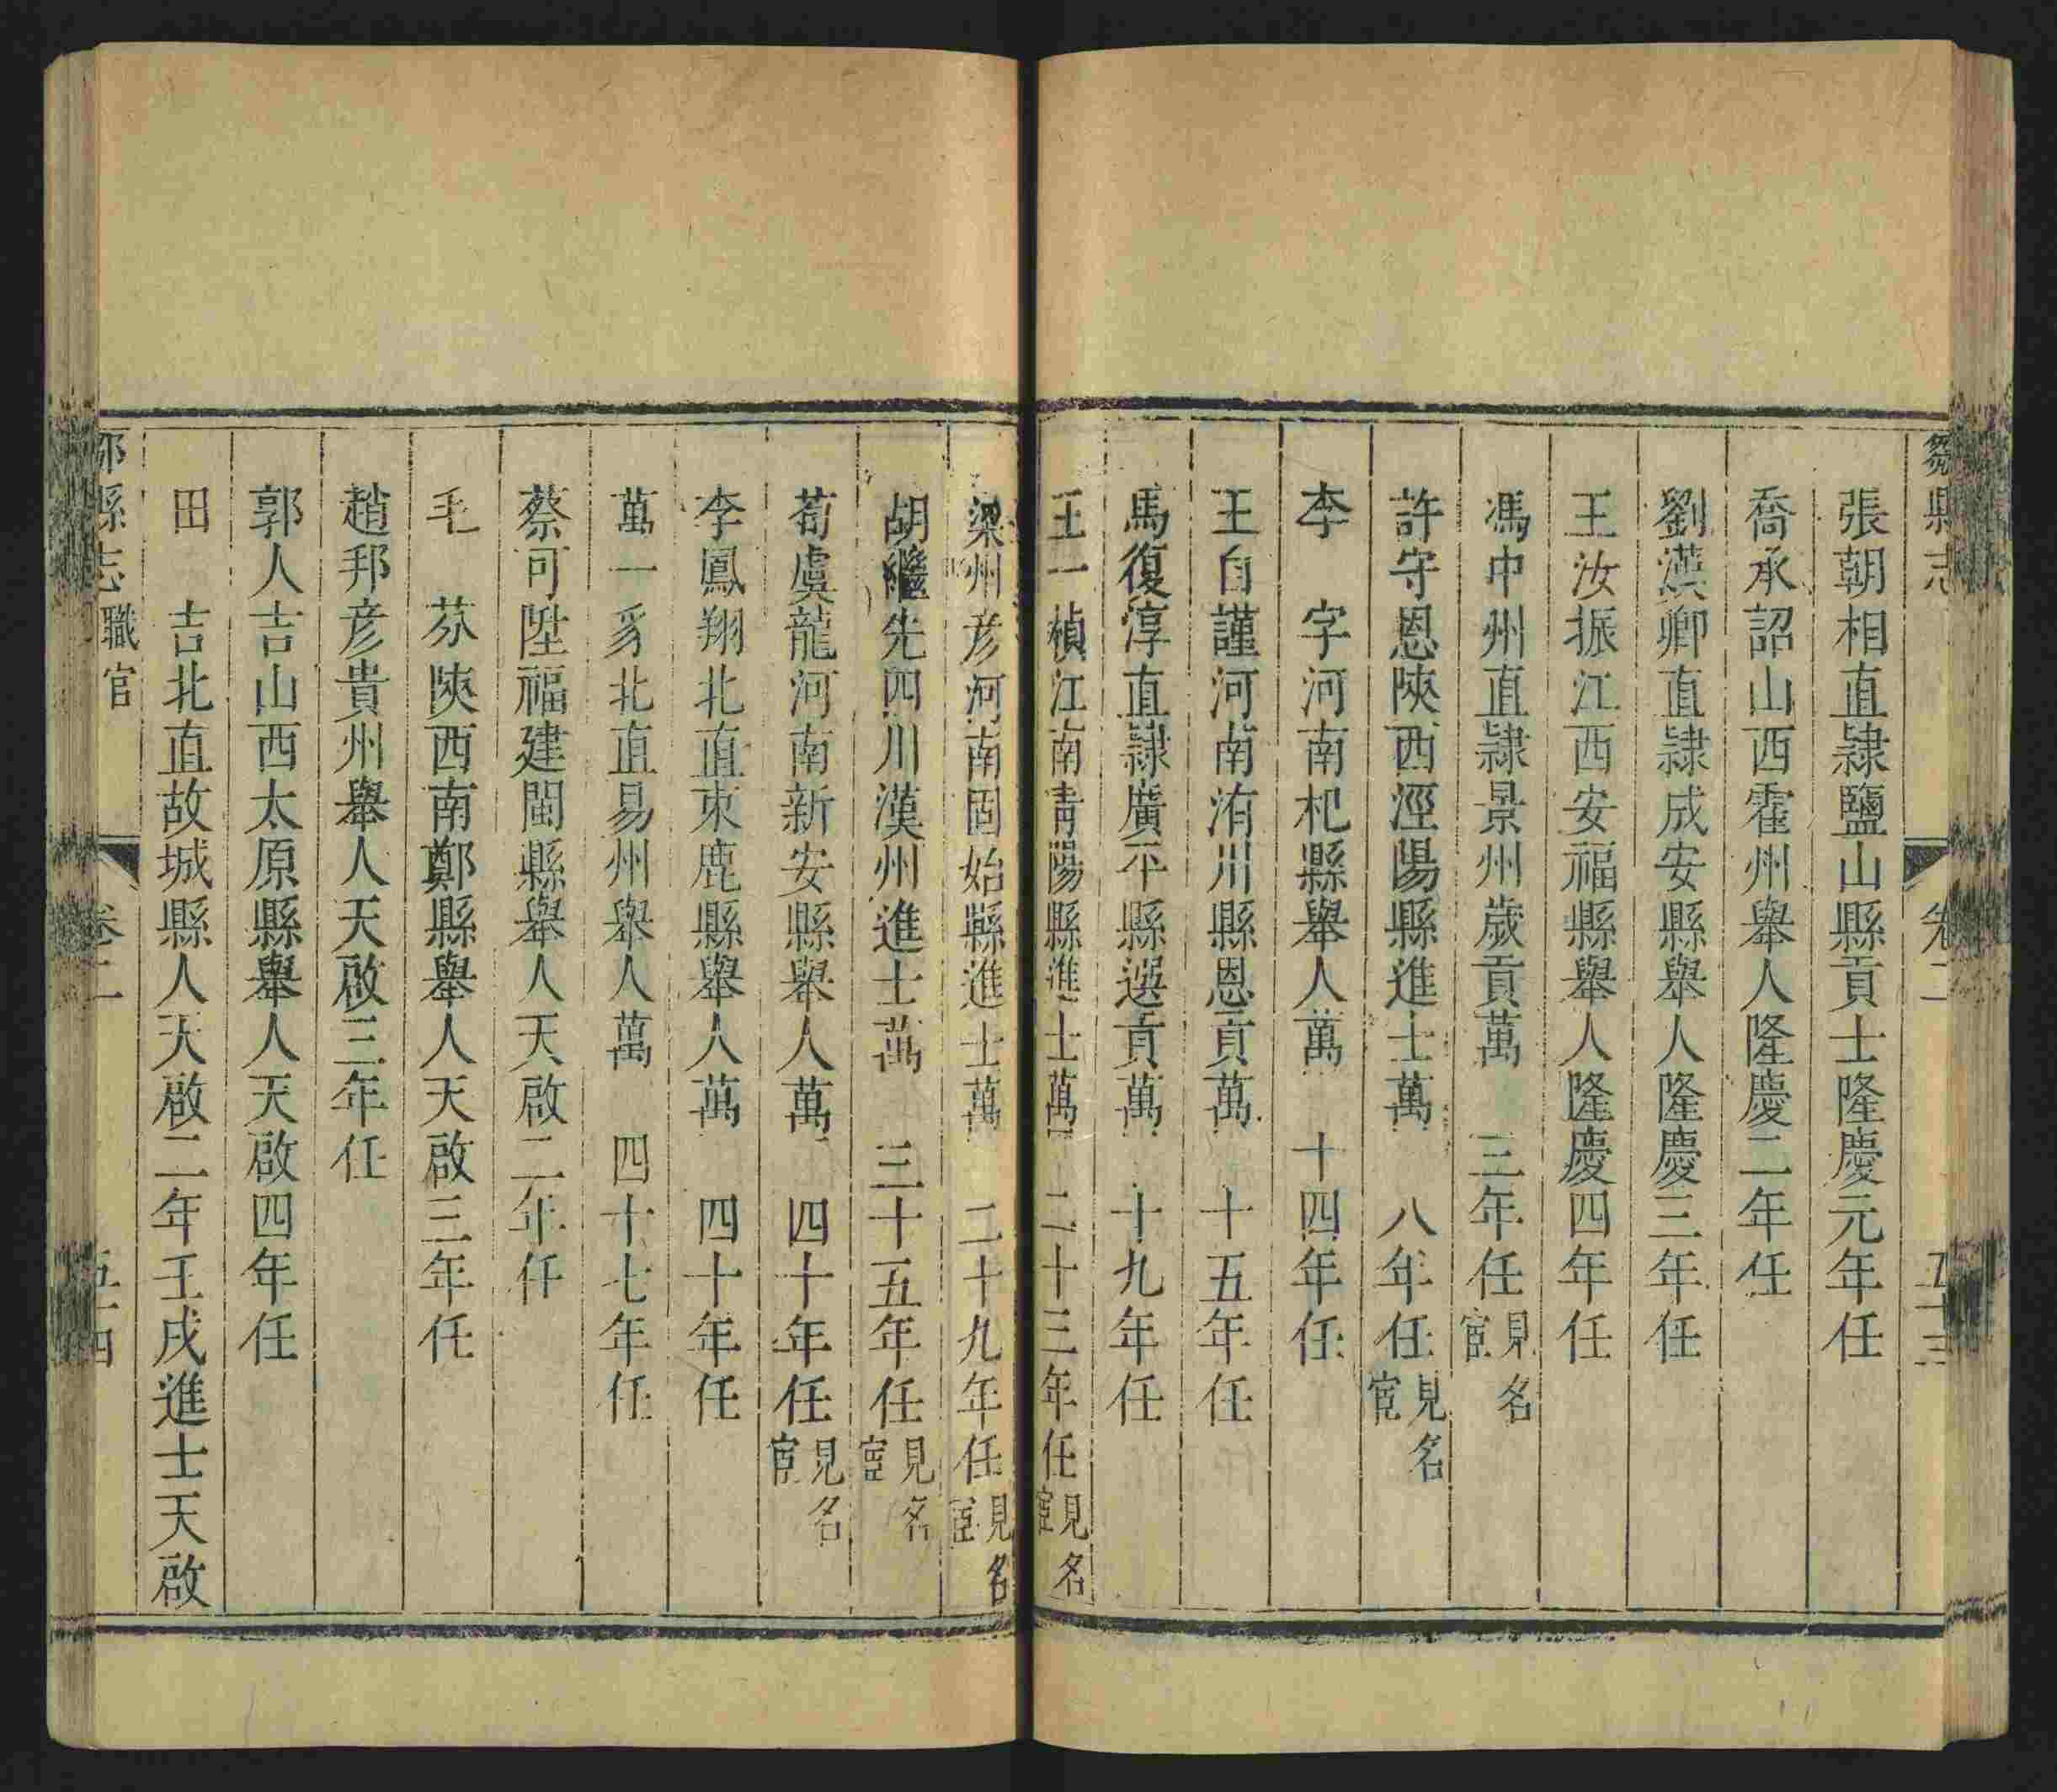 張朝相直隷鹽山縣貢士隆慶元年任
喬承詔山西霍州舉人隆慶二年任
劉漢卿直隷成安縣舉人隆慶三年任
王汝振江西安福縣舉人隆慶四年任
馮中州直隷景州歲貢萬 三年任見名宦
許守恩陝西涇陽縣進士萬 八年任見名宦
李 字河南杞縣舉人萬 十四年任
王自謹河南洧川縣恩貢萬 十五年任
馬復淳直隷廣平縣選貢萬 十九年任
王一楨江南青陽縣進士萬 二十三年任見名宦
梁州彥河南固始縣進士萬 二十九年任見名宦
胡繼先四川漢州進士萬 三十五年任見名宦
荀虞龍河南新安縣舉人萬 四十年任見名宦
李鳳翔北直束鹿縣舉人萬 四十年任
萬一豸北直易州舉人萬 四十七年任
蔡可陞福建閩縣舉人天啟二年任
毛 芬陝西南鄭縣舉人天啟三年任
趙邦彥貴州舉人天啟三年任
郭人吉山西太原縣舉人天啟四年任
田 吉北直故城縣人天啟二年壬戌進士天啟
縣志 職官 卷二